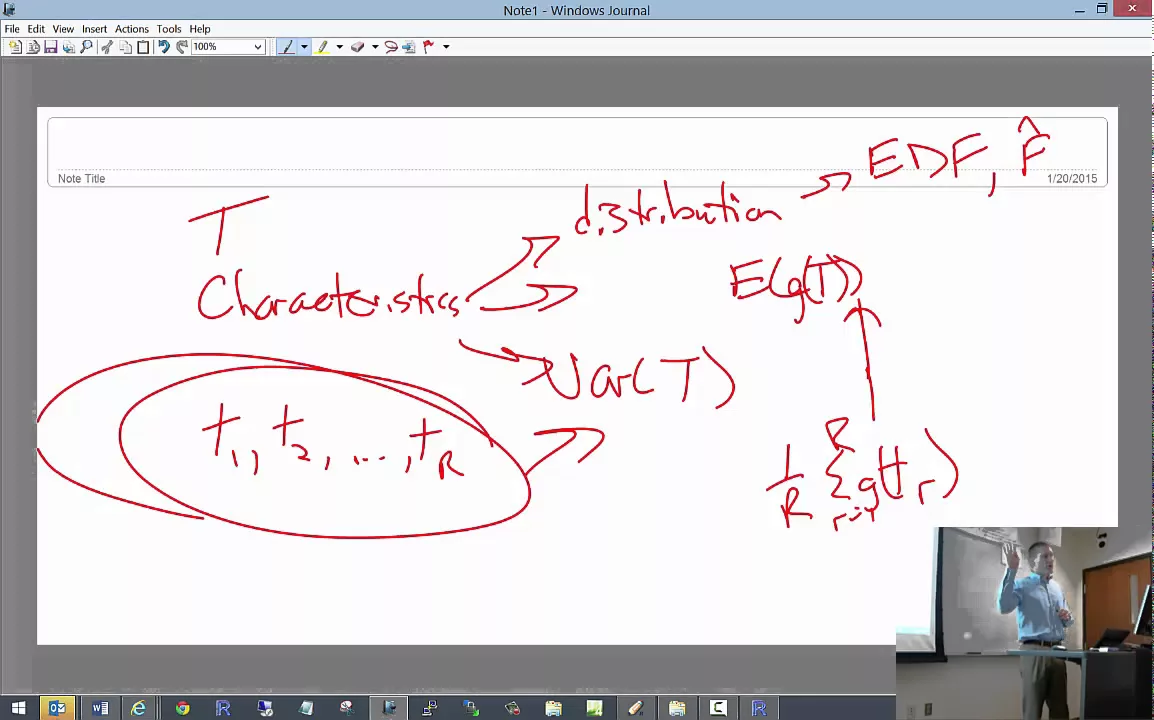 Note1 - Windows Journal
File Edit View Insert Actions Tools Help
100%
Note Title
1/20/2015
EDF, F̂
T
distribution
E(g(T))
Characteristics
Var(T)
t₁, t₂, ..., t_R
1/R Σ_{r=1}^{R} g(t_r)